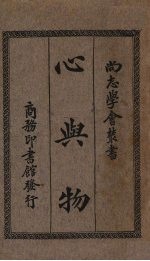 尚志學會叢書
心與物
商務印書館發行